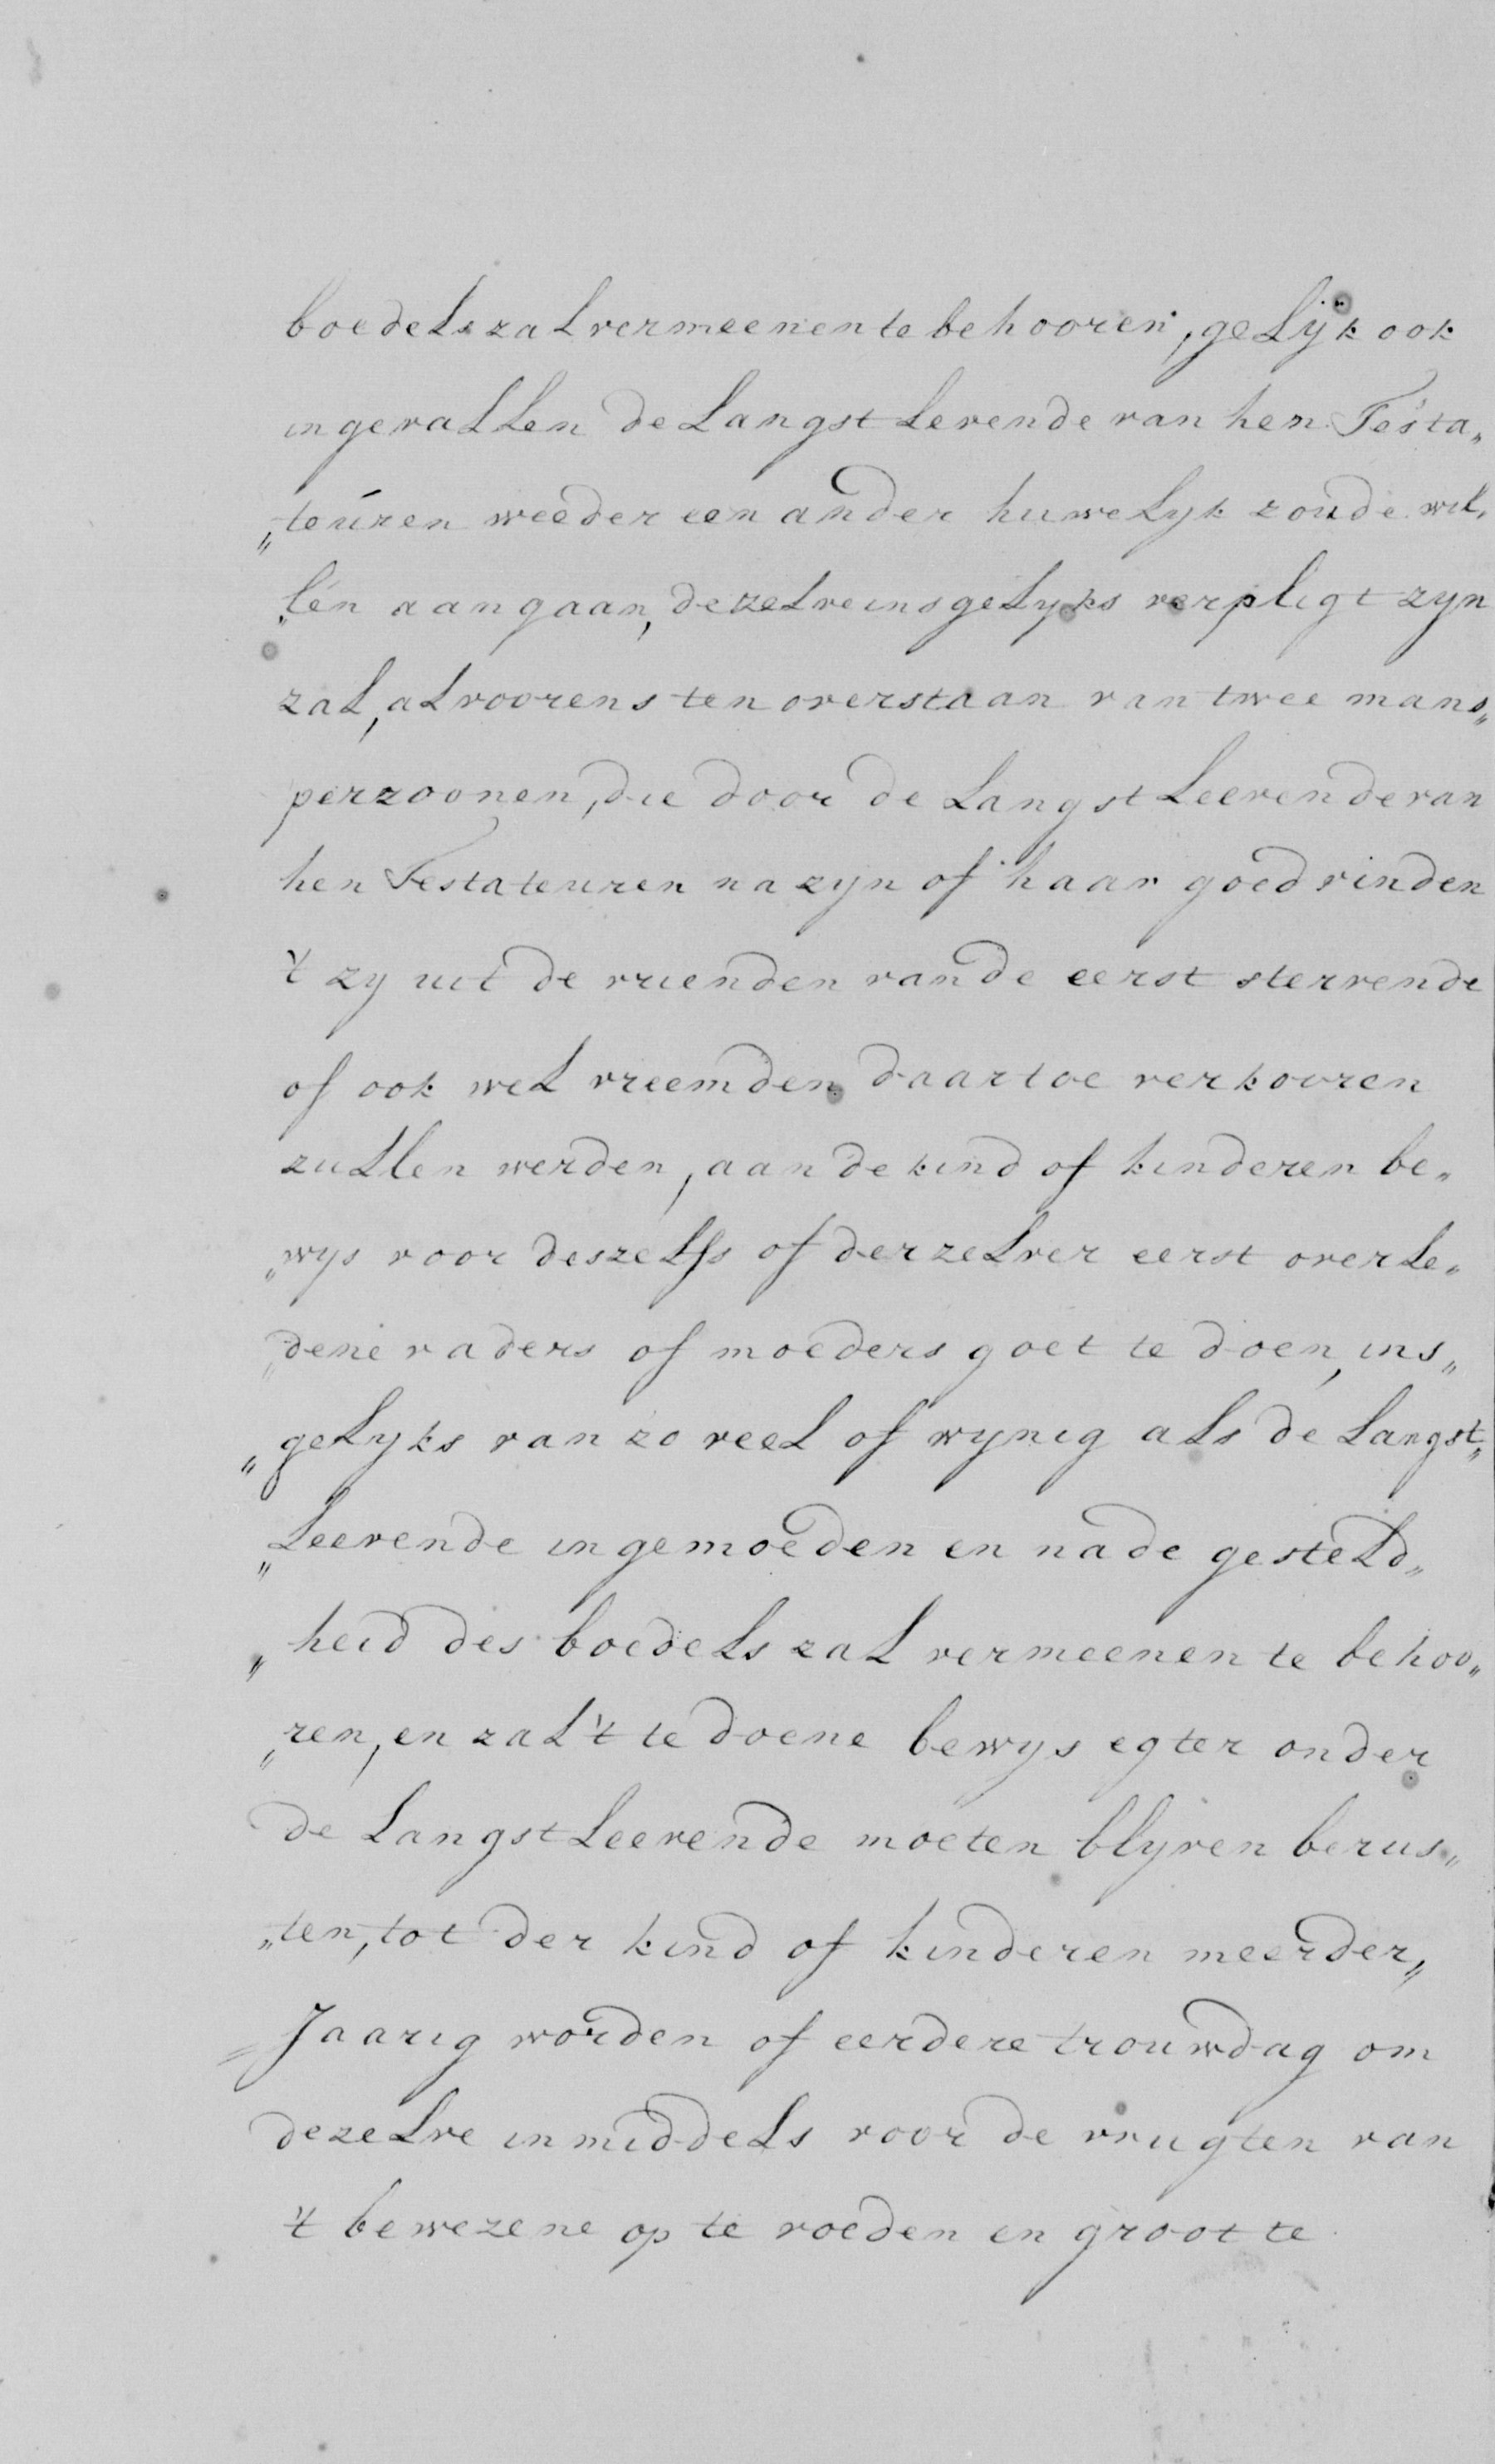 boedels zal vermeenen te behooren, gelijk ook
ingevallen de Langst Levende van hen Testa„
„teuren weeder een ander huwelyk zoude wil„
„len aangaan, dezelve insgelyks verpligt zyn
zal, alvoorens ten overstaan van twee mans„
perzoonen, die door de Langst Leevende van
hen Testateuren na zyn of haar goedvinden
't zy uit de vrienden van de eerst stervende
of ook wel vreemden daartoe verkooren
zullen werden, aan de kind of kinderen be„
„wys voor deszelfs of derzelver eerst overle„
„dene vaders of moeders goet te doen, ins„
„gelyks van zo veel of wynig als de Langst„
„Leevende in gemoeden en na de gesteld„
„heid des boedels zal vermeenen te behoo„
„ren, en zal 't te doene bewys egter onder
de Langst Leevende moeten blyven berus„
„ten, tot der kind of kinderen meerder„
=Jaarig worden of eerdere trouwdag om
dezelve inmiddels voor de vrugten van
't bewezene op te voeden en groot te